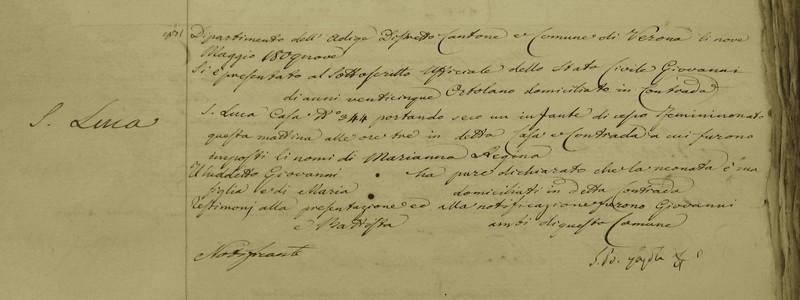 Dipartimento dell' Adige Distretto Cantone e Comune di Verona li nove
Maggio 1809 nove
Si è presentato al Sottoscritto Ufficiale dello Stato Civile Giovanni
di anni venticinque Ortolano domiciliato in Contrada
S. Luca
S. Luca Casa N.° 344 portando seco un infante di sesso Femminino nato
questa mattina alle ore tre in detta Casa e Contrada a cui furono
imposti li nomi di Marianna Regina
Il suddetto Giovanni ha pure dichiarato che la neonata è sua
figlia e di Maria domiciliati in detta Contrada
Testimonj alla presentazione ed alla notificazione furono Giovanni
e Battista ambi di questo Comune
Notificante